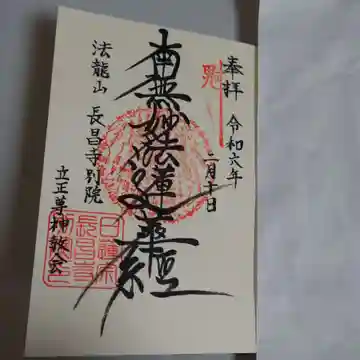 奉拝 令和六年
二月十日
南無妙法蓮華経
法龍山 長昌寺別院
立正尊神教会